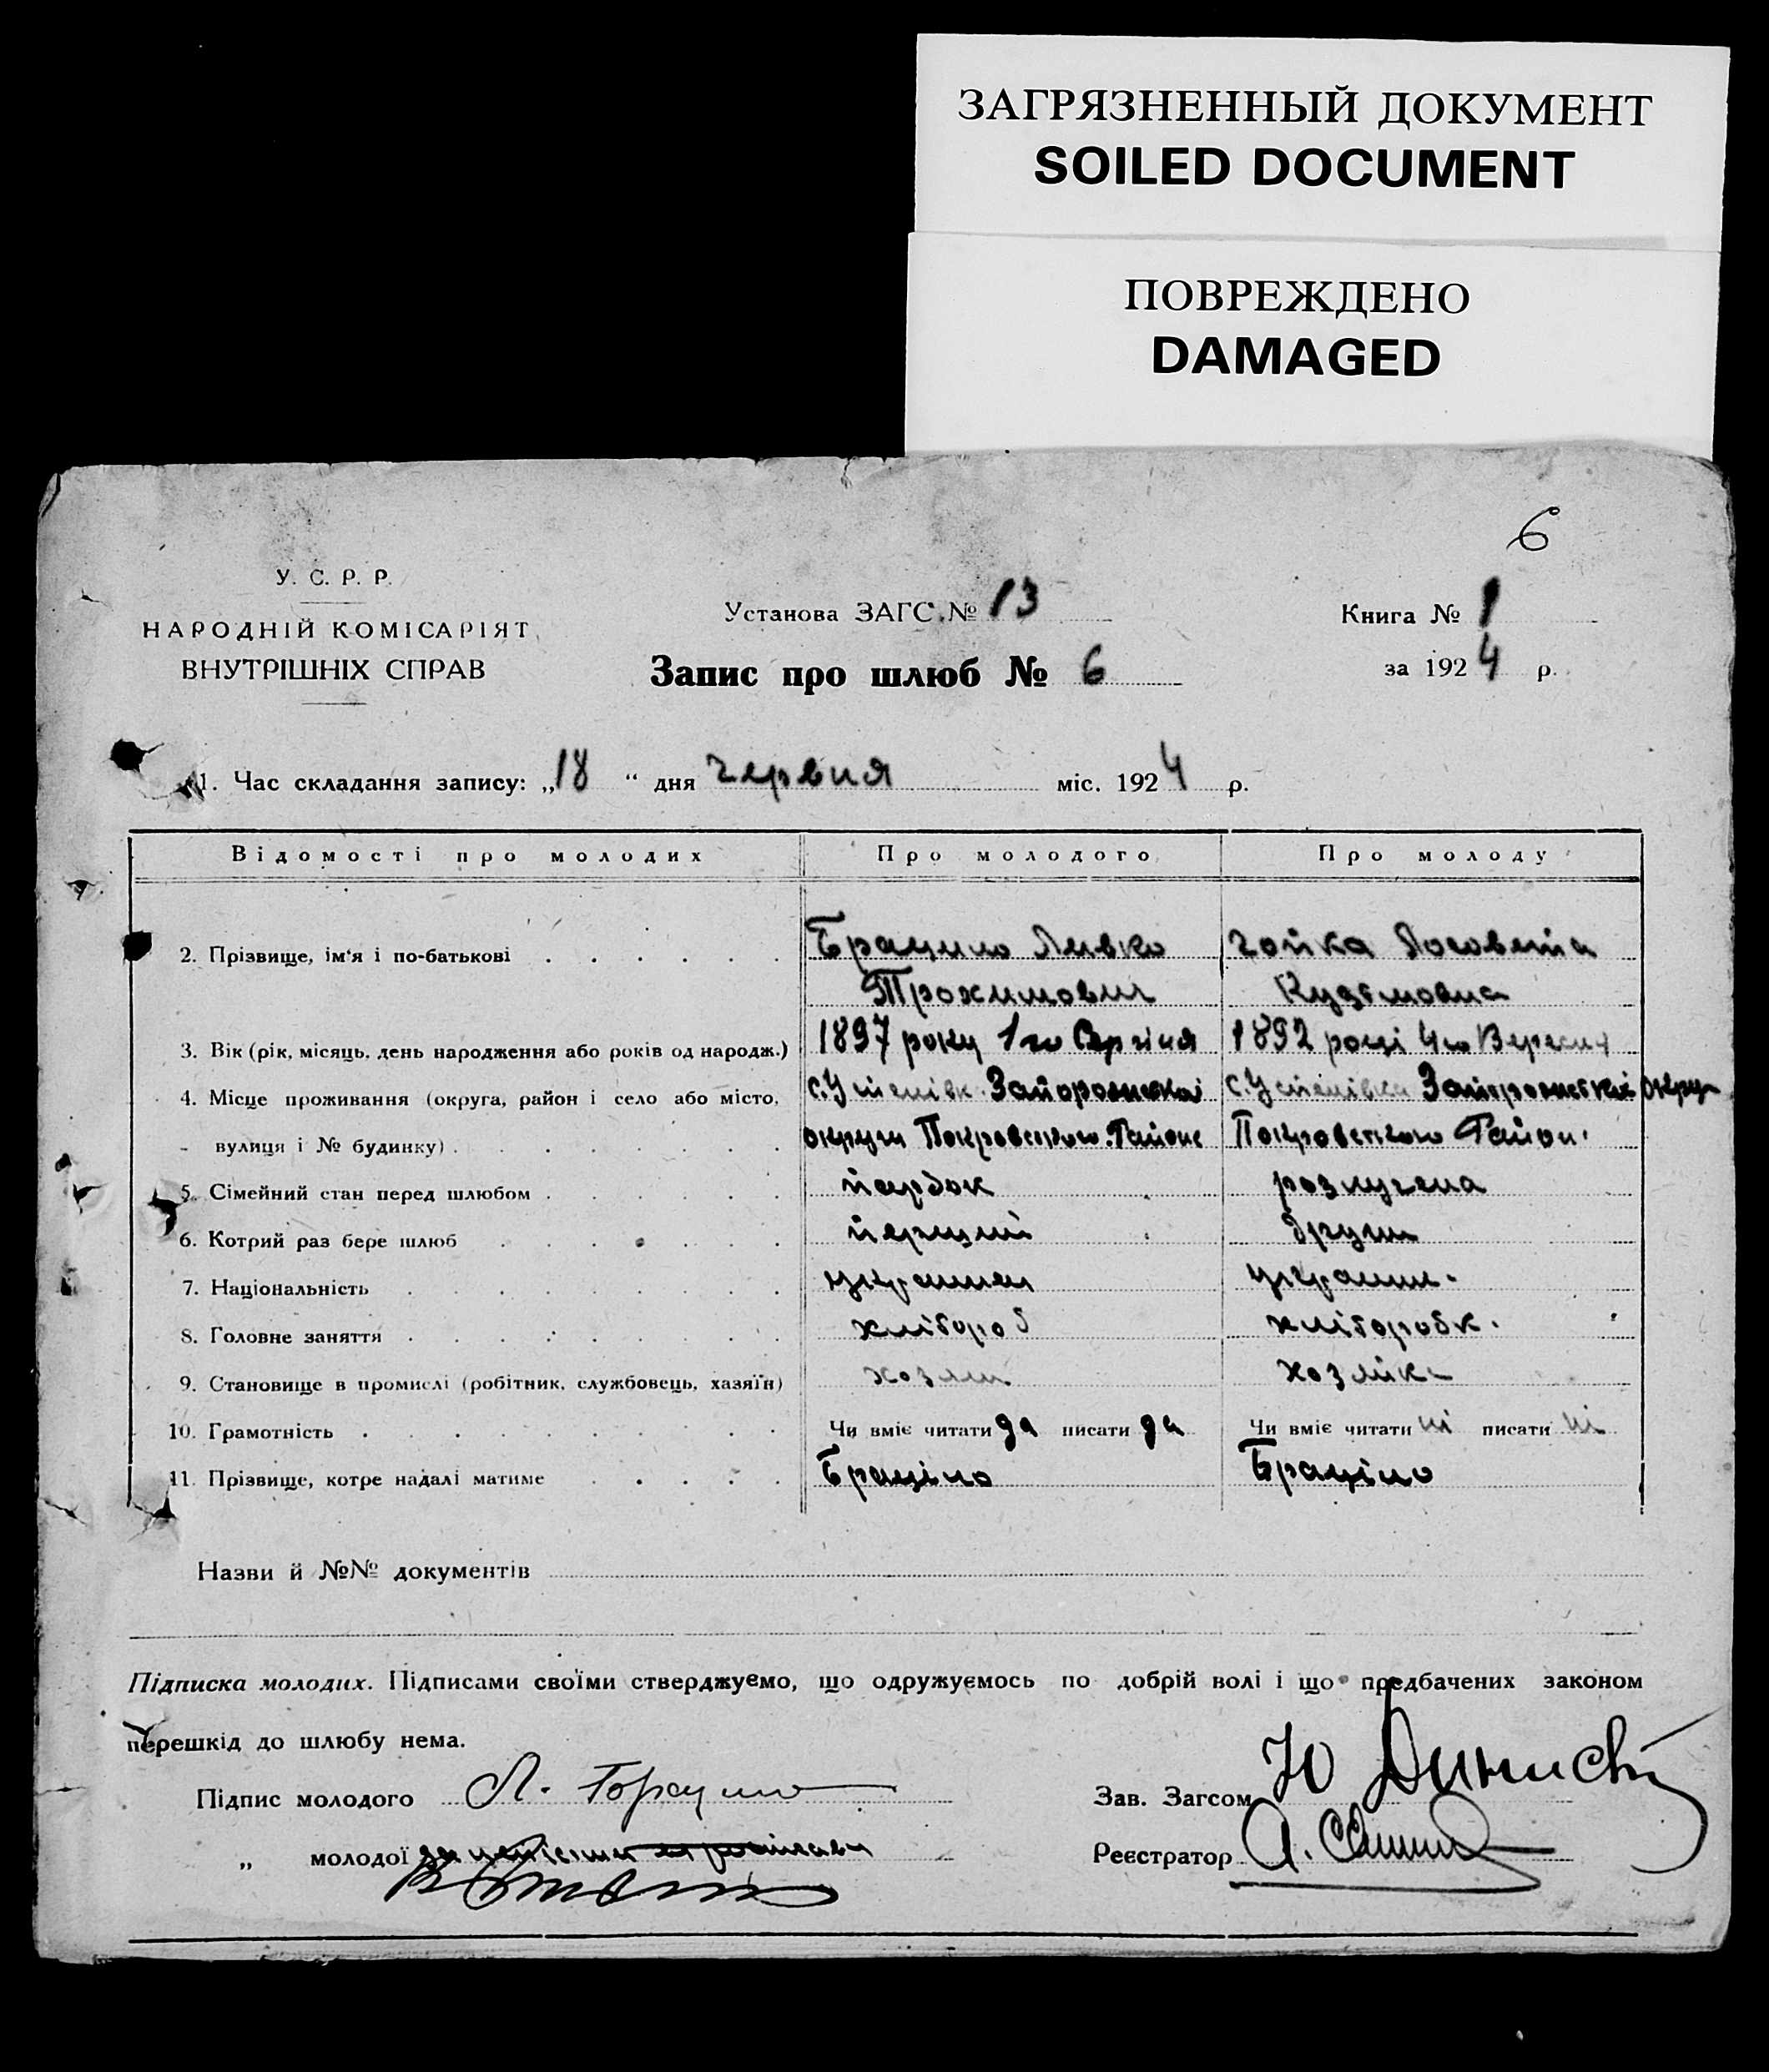 ЗАГРЯЗНЕННЫЙ ДОКУМЕНТ
SOILED DOCUMENT
ПОВРЕЖДЕНО
DAMAGED
6
У. С. Р. Р.
НАРОДНІЙ КОМІСАРІЯТ
ВНУТРІШНІХ СПРАВ
Установа ЗАГС № 13
Книга № 1
Запис про шлюб № 6
за 1924 р.
1. Час складання запису: „18“ дня червня міс. 1924 р.
Відомості про молодих Про молодого Про молоду
2. Прізвище, ім'я і по-батькові Левко
Трохимович Кузьмовна
3. Вік (рік, місяць, день народження або років од народж.) 1897 року 1го Серпня 1892 році 4го Вересня
4. Місце проживання (округа, район і село або місто, Запорожської Запорожської округ
вулиця і № будинку) округи Покровського Району Покровського Район.
5. Сімейний стан перед шлюбом парубок розлучена
6. Котрий раз бере шлюб перший другий
7. Національність украин.
8. Головне заняття хлібороб хлібороБк.
9. Становище в промислі (робітник, службовець, хазяїн) хозяин хозяйка
10. Грамотність Чи вміє читати да писати да Чи вміє читати ні писати ні
11. Прізвище, котре надалі матиме
Назви й №№ документів
Підписка молодих. Підписами своїми стверджуємо, що одружуємось по добрій волі і що предбачених законом
перешкід до шлюбу нема.
Підпис молодого Л.
Зав. Загсом Ю
„ молодої
Реєстратор А.